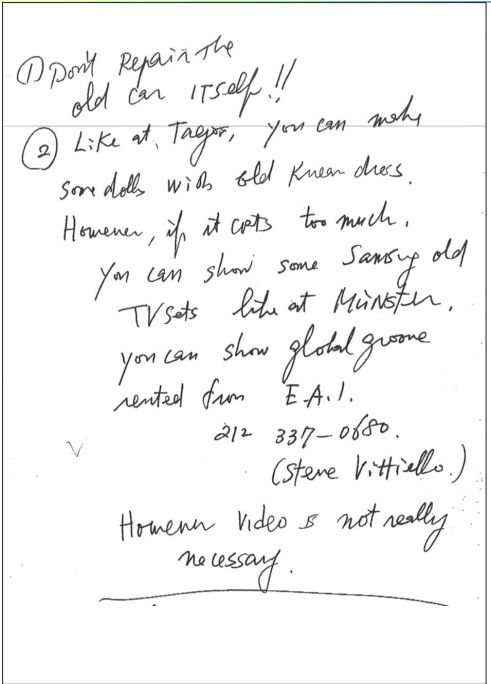 ① Don't Repair The
old car ITself!!
② Like at, Taejon, you can make
some dolls with old Korean dress.
However, if it costs too much.
You can show some Samsung old
TV sets like at MüNSTER.
you can show global groove
rented from E.A.I.
212 337-0680.
(Steve Vittiello.)
However Video is not really
necessary.